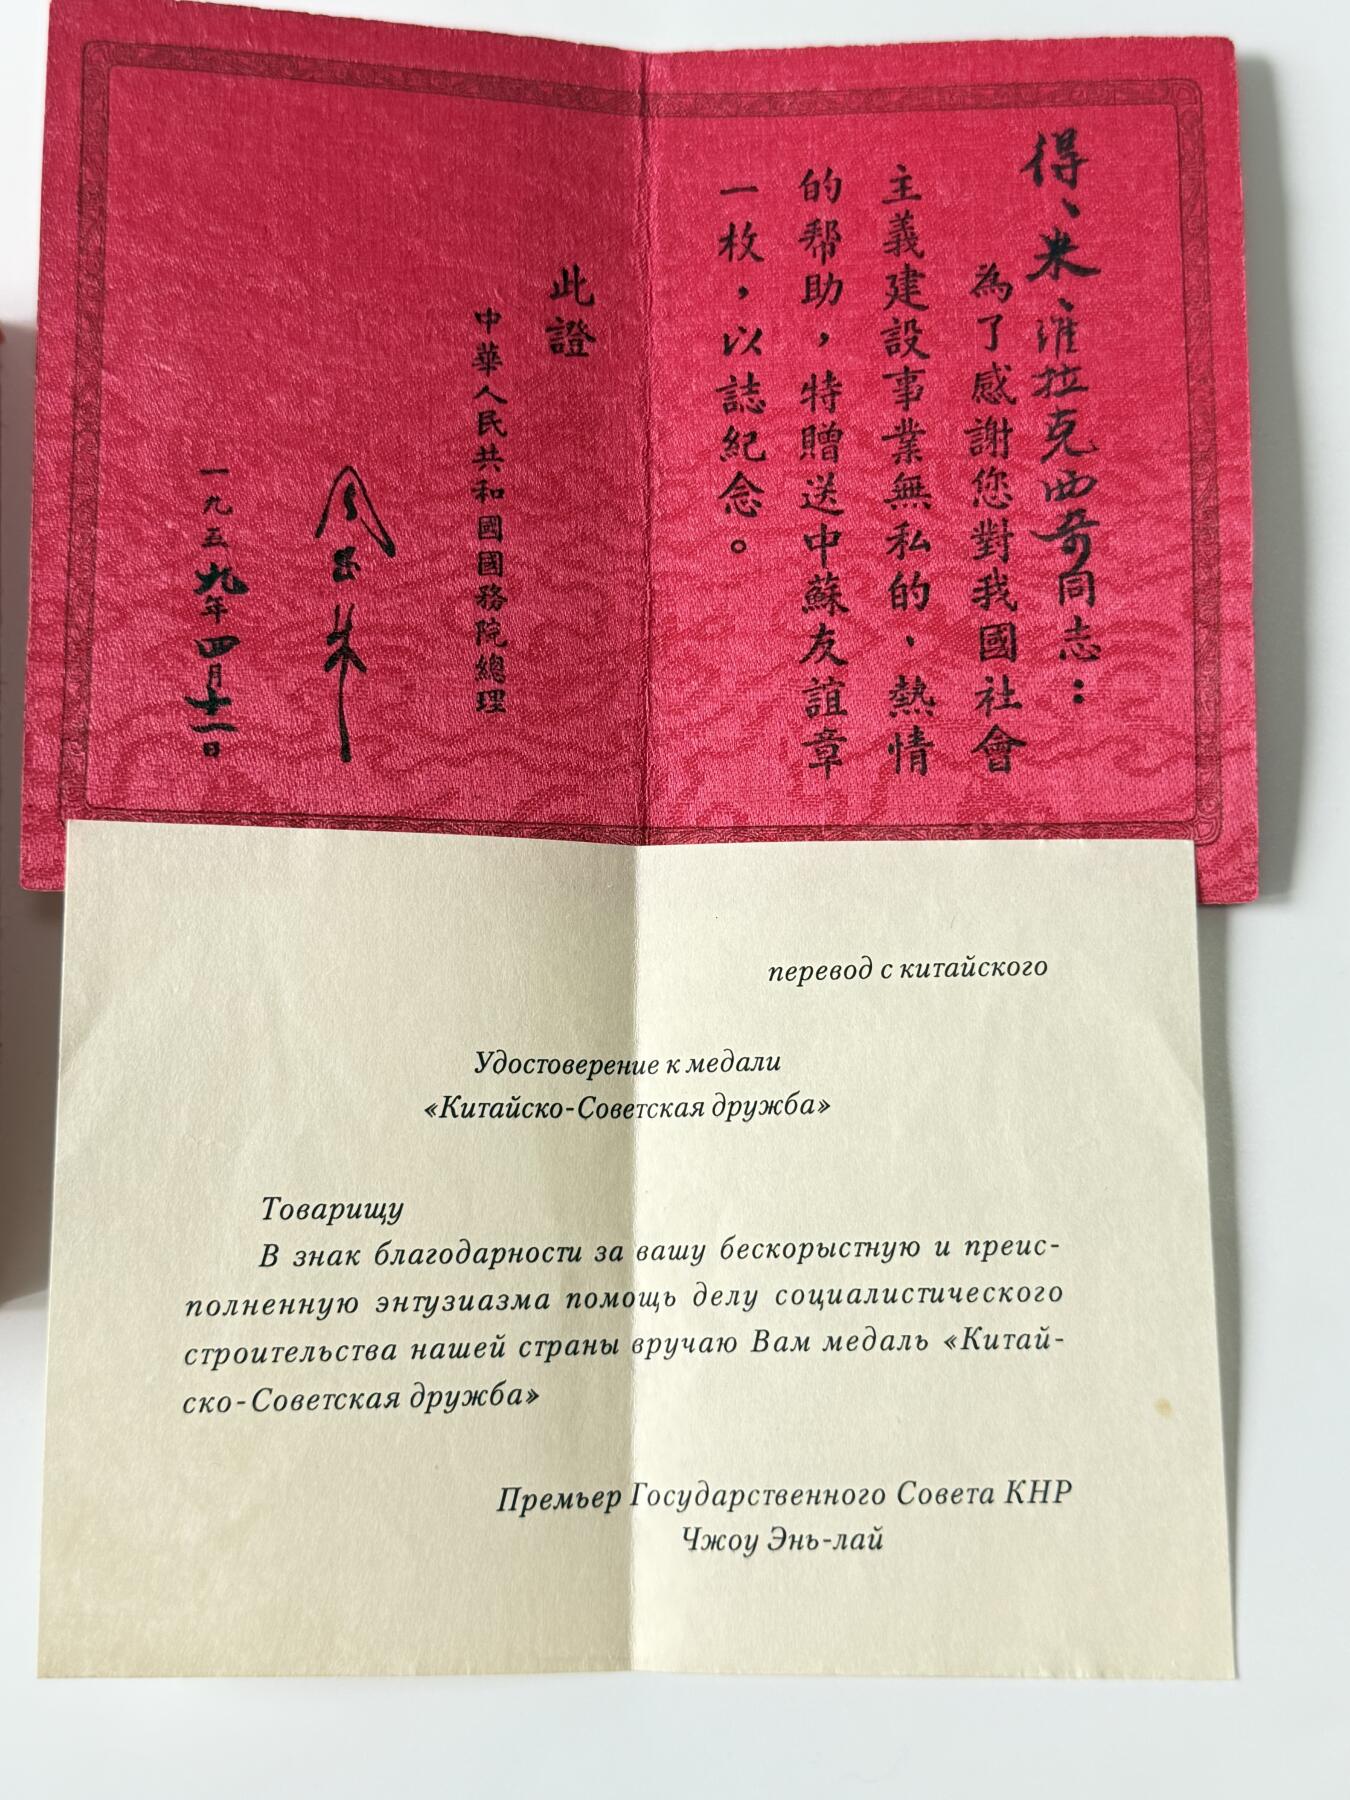 得、米、維拉克西奇同志：
為了感謝您對我國社會
主義建設事業無私的、熱情
的幫助，特贈送中蘇友誼章
一枚，以誌紀念。
此證
中華人民共和國國務院總理
周恩来
一九五九年四月十一日
перевод с китайского
Удостоверение к медали
«Китайско-Советская дружба»
Товарищу
В знак благодарности за вашу бескорыстную и преис-
полненную энтузиазма помощь делу социалистического
строительства нашей страны вручаю Вам медаль «Китай-
ско-Советская дружба»
Премьер Государственного Совета КНР
Чжоу Энь-лай